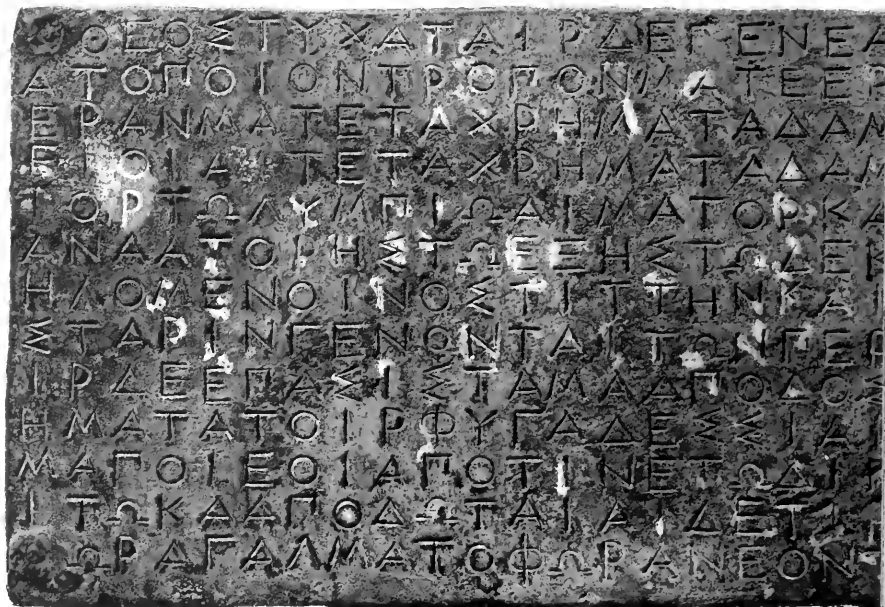 ΘΕΟΣΤΥΧΑΤΑΙΡΔΕΓΕΝΕΑ
ΑΤΟΠΟΙΟΝΤΡΟΠΟΝΜΑΤΕΕΡ
ΕΡΑΝΜΑΤΕΤΑΧΡΗΜΑΤΑΔΑΜ
ΕΙΟΙΑΙΤΕΤΑΧΡΗΜΑΤΑΔΑΜ
ΤΟΡΤΩΛΥΜΠΙΩΑΙΜΑΤΟΡΚΑ
ΑΝΑΑΤΟΡΗΣΤΩΕΞΗΣΤΩΔΕΚ
ΗΛΟΜΕΝΟΙΝΟΣΤΙΤΤΗΝΚΑΙ
ΣΤΑΡΙΝΓΕΝΩΝΤΑΙΤΩΝΠΕΡ
ΙΡΔΕΕΠΑΣΙΣΤΑΜΑΑΠΟΔΟΣ
ΗΜΑΤΑΤΟΙΡΦΥΓΑΔΕΣΣΙΑΙ
ΜΑΠΟΙΕΟΙΑΠΟΤΙΝΕΤΩΔΙ
ΙΤΩΚΑΑΠΟΔΩΤΑΙΑΙΔΕΤΙ
ΩΡΑΓΑΛΜΑΤΟΦΩΡΑΝΕΟΝ